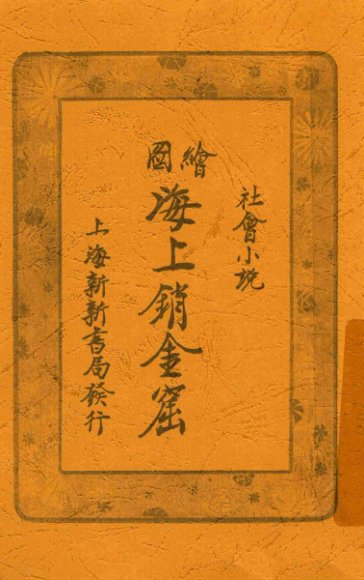 社會小說
繪圖
海上銷金窟
上海新新書局發行